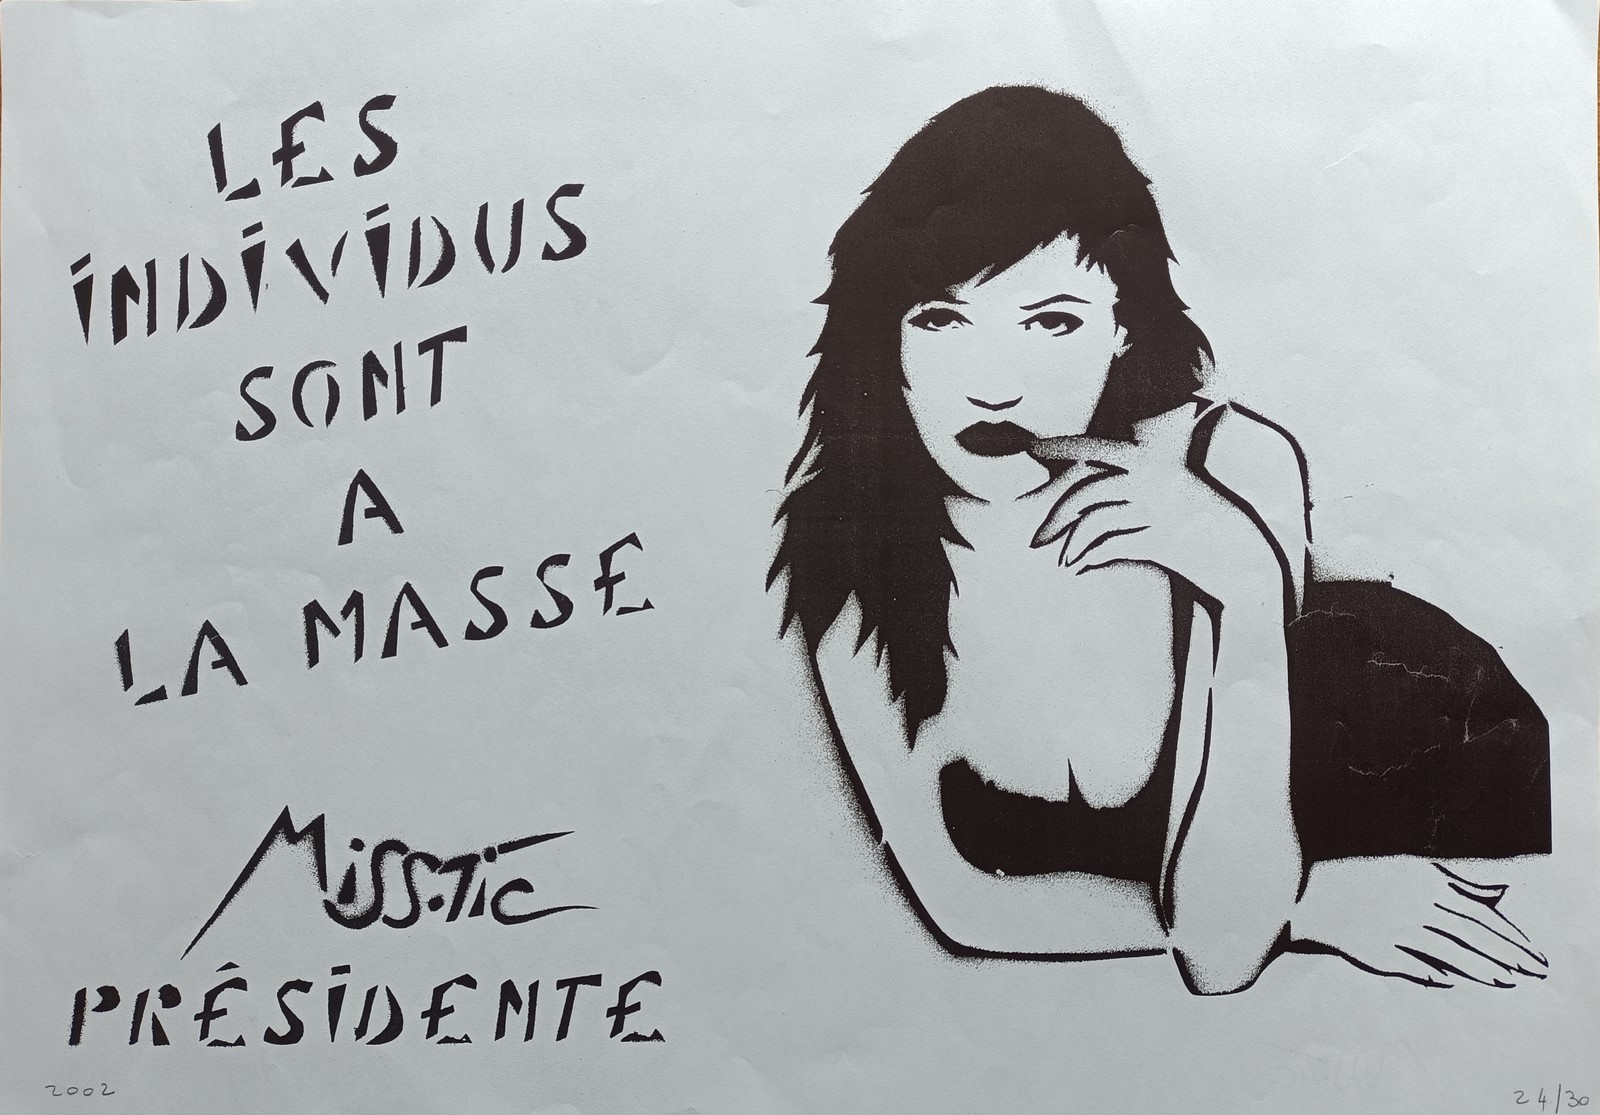 LES
iNDiViDUS
SONT
A
LA MASSE
MiSS.TiC
PRÉSiDENTE
2002
24/30